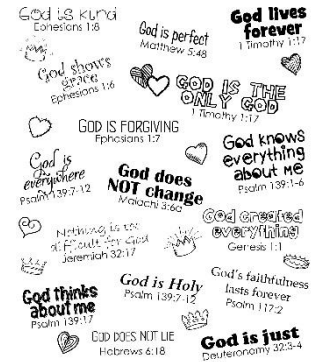 God is kind
Ephesians 1:8
God is perfect
Matthew 5:48
God lives
forever
1 Timothy 1:17
God shows
grace
Ephesians 1:6
GOD IS THE
ONLY GOD
1 Timothy 1:17
GOD IS FORGIVING
Ephesians 1:7
God knows
everything
about me
Psalm 139:1-6
God is
everywhere
Psalm 139:7-12
God does
NOT change
Malachi 3:6a
God created
everything
Genesis 1:1
Nothing is too
difficult for God
Jeremiah 32:17
God is Holy
Psalm 139:7-12
God's faithfulness
lasts forever
Psalm 117:2
God thinks
about me
Psalm 139:17
GOD DOES NOT LIE
Hebrews 6:18
God is just
Deuteronomy 32:3-4